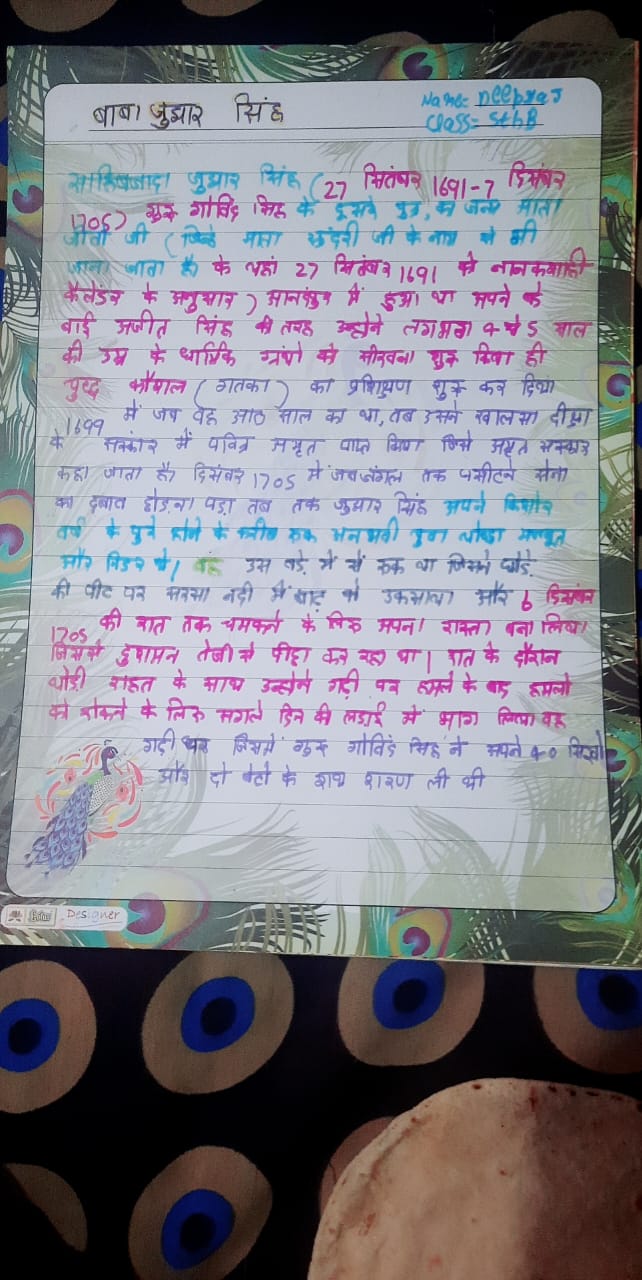 बाबा जुझार सिंह
Name:- Deepraj
Class:- 5th B
साहिबजादा जुझार सिंह (27 सितंबर 1691-7 दिसंबर
1705) गुरु गोविंद सिंह के दूसरे पुत्र, का जन्म माता
जीतो जी (जिन्हे माता सुंदरी जी के नाम से भी
जाना जाता है) के यहां 27 सितंबर 1691 को नानकशाही
कैलेंडर के अनुसार) आनंदपुर में हुआ था अपने बड़े
बाई अजीत सिंह की तरह उन्होने लगभग 4 से 5 साल
की उम्र के धार्मिक ग्रंथो को सीखना शुरु किया ही
युद्ध कौशल (गतका) का प्रशिक्षण शुरु कर दिया
1699 में जब वह आठ साल का था, तब उसने खालसा दीक्षा
के संस्कार में पवित्र अमृत प्राप्त किया जिसे अमृत संस्कार
कहा जाता है। दिसंबर 1705 में जब जंगल तक घसीटने सेना
का दबाव छोड़ना पड़ा तब तक जुझार सिंह अपने किशोर
वर्ष के पुरे होने के करीब एक अनुभवी युवा योद्धा मजबूत
और निडर थे। वह उस बड़े में से एक था जिसने घोड़े
की पीट पर सरसा नदी में बाद को उकसाया और 6 दिसंबर
1705 की रात तक चमकने के लिए अपना रास्ता बना लिया
जिससे दुशमन तेजी से पीछा कर रहा था। रात के दौरान
थोड़ी राहत के साथ उन्होने गढ़ी पर हामले के बाद हामलो
को रोकने के लिए अगले दिन की लड़ाई में भाग लिया वह
गढ़ी घर जिसमें गुरु गोविंद सिंह ने अपने 40 सिखो
और दो बेटो के साथ शरण ली थी
Lotus Designer